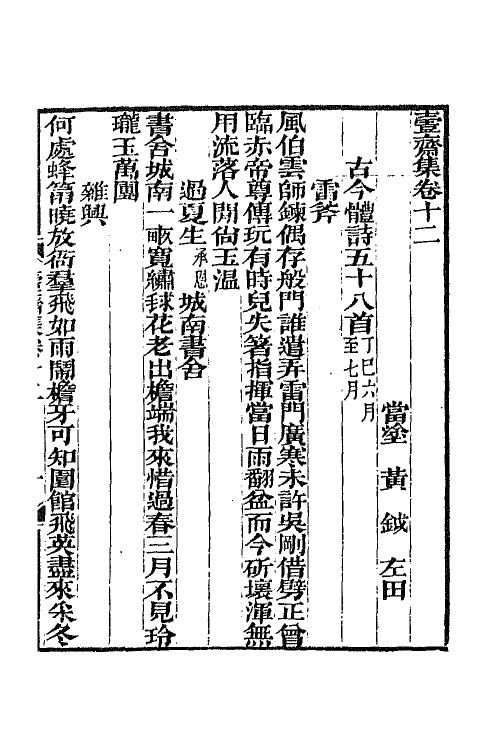 壹齋集卷十二
當塗 黃 鉞 左田
古今體詩五十八首丁巳六月至七月
雷斧
風伯雲師鍊偶存般門誰遺弄雷門廣寒未許吳剛借劈正曾
臨赤帝尊傳玩有時兒失箸指揮當日雨翻盆而今斫壞渾無
用流落人閒尙玉溫
過夏生承恩城南書舍
書舍城南一畝寬繡毬花老出檐端我來惜過春三月不見玲
瓏玉萬團
雜興
何處蜂筩曉放衙羣飛如雨鬧檐牙可知圍館飛英盡來采冬